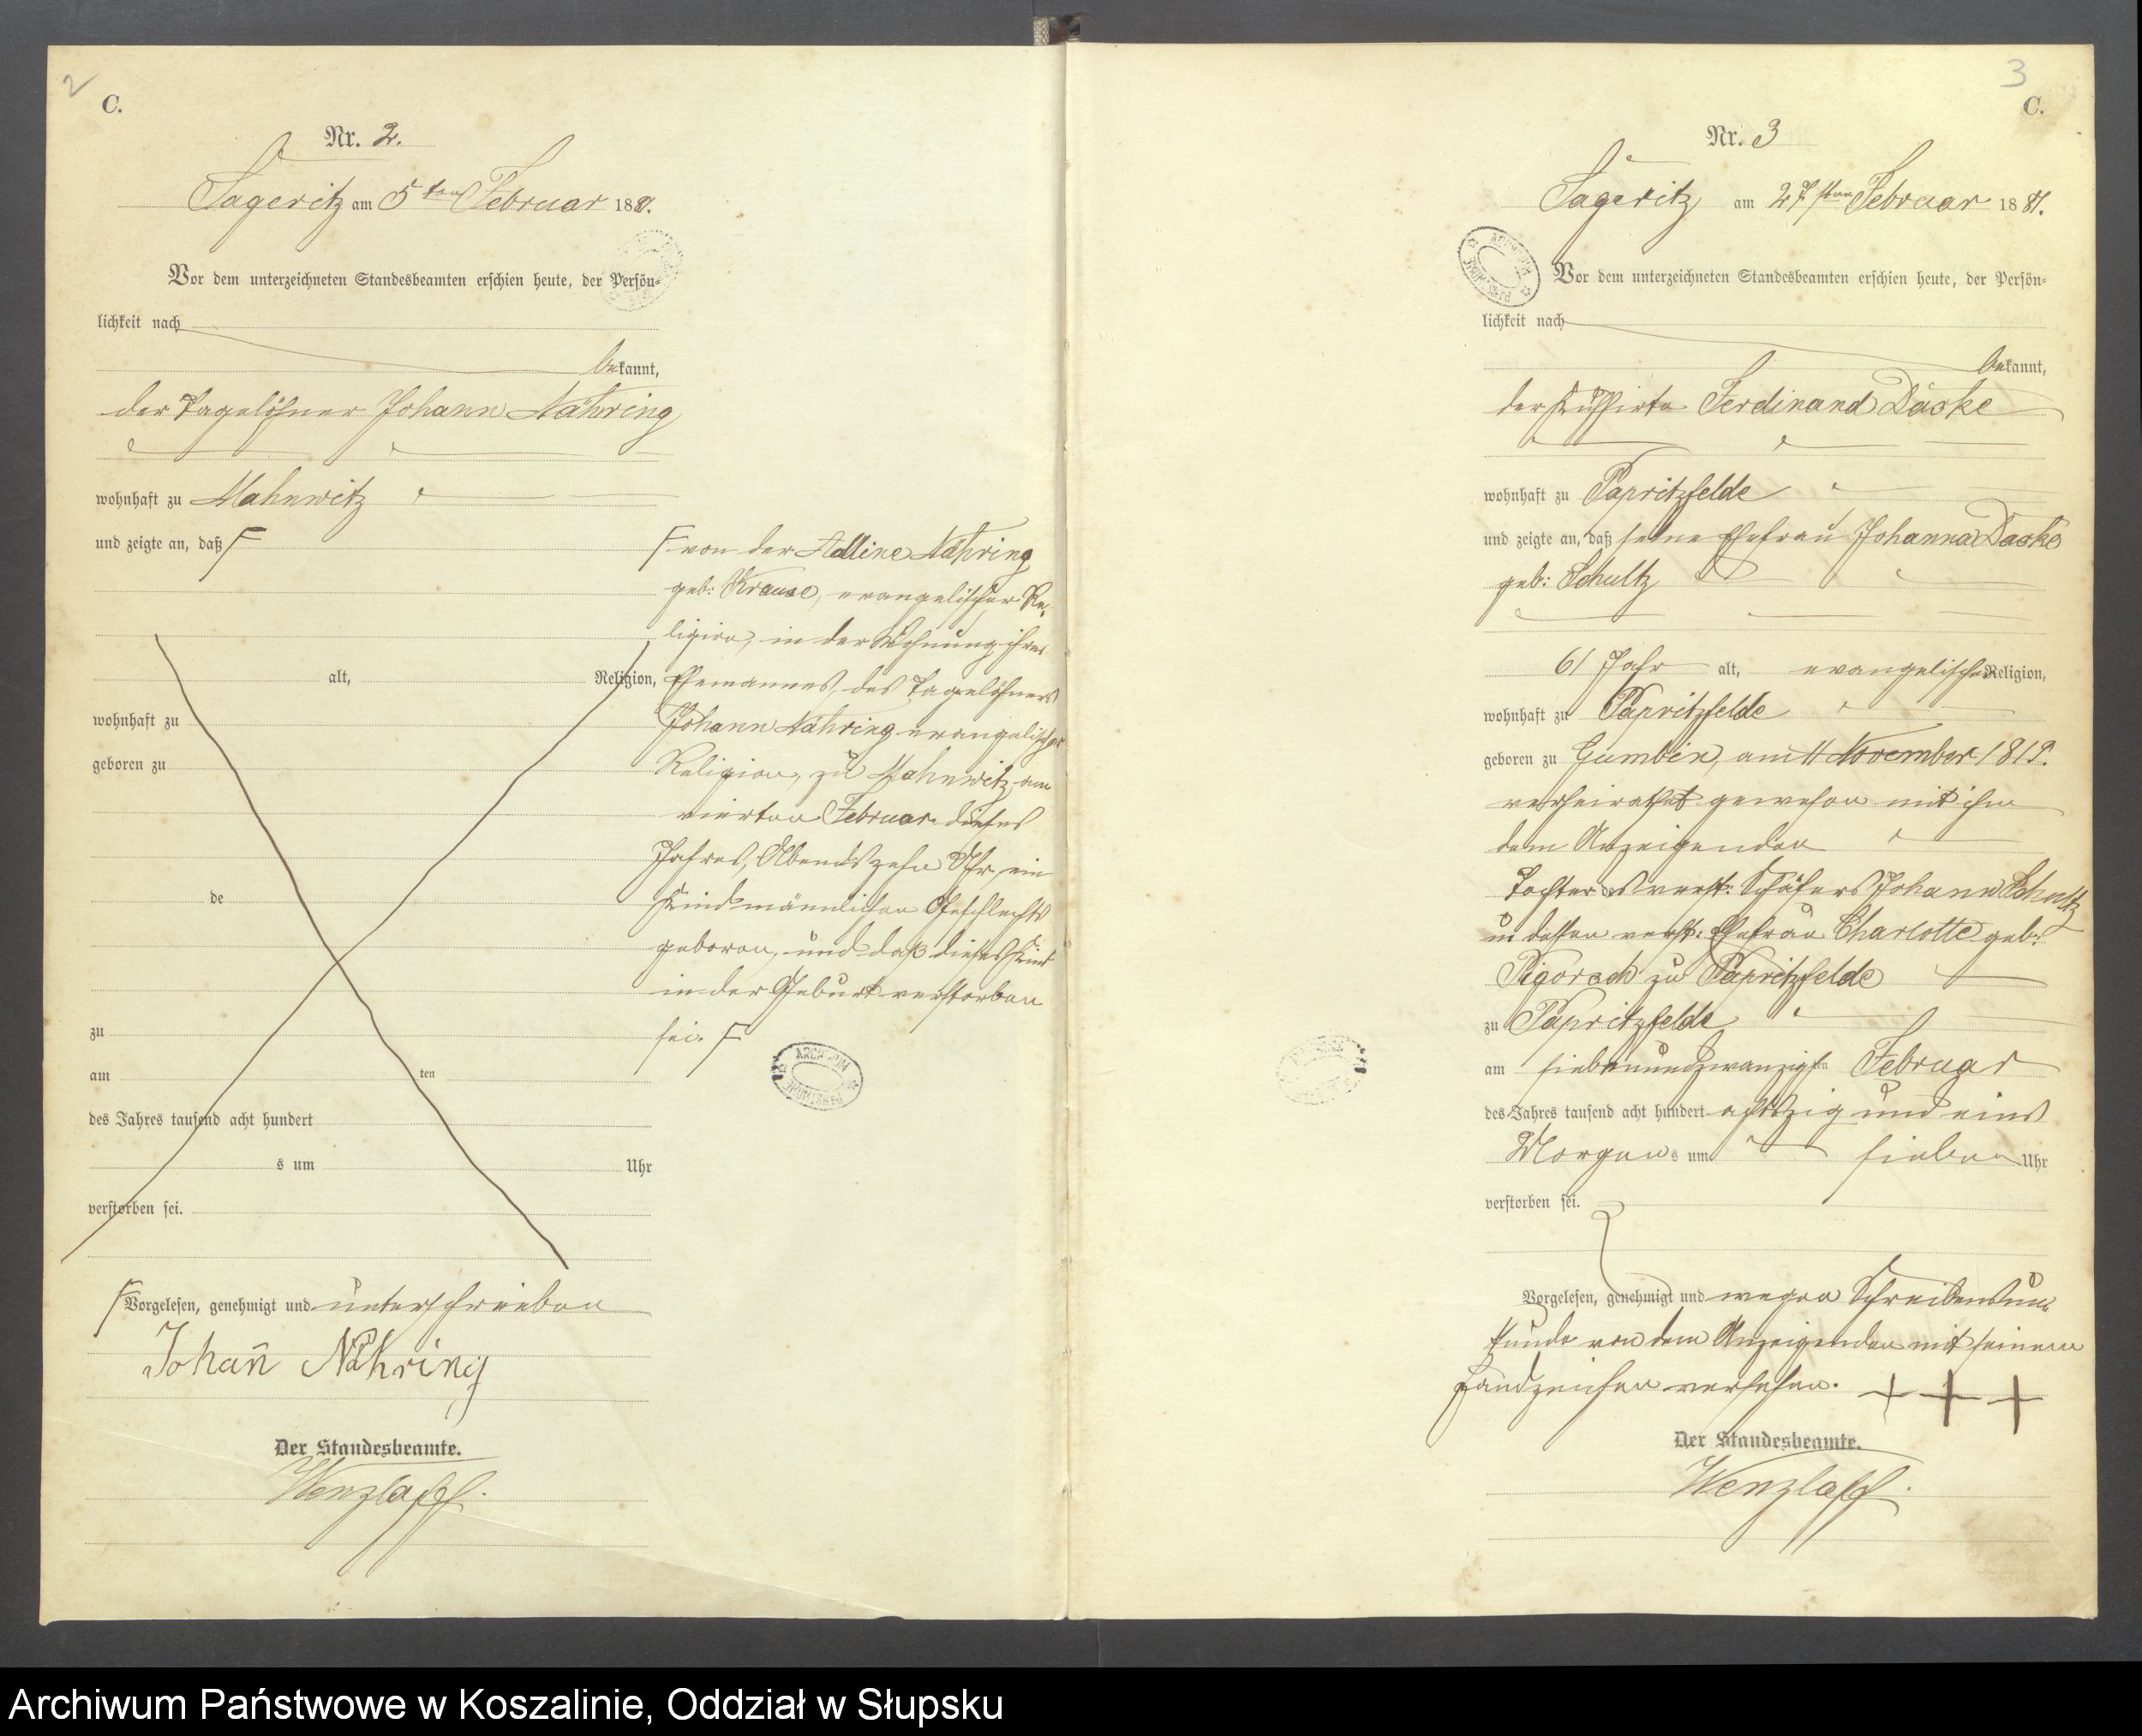 2
C.
Nr. 2.
Sageritz am 5ten Februar 1881.
Vor dem unterzeichneten Standesbeamten erschien heute, der Persön-
lichkeit nach
bekannt,
der Tagelöhner Johann Nähring
wohnhaft zu Mahnwitz
und zeigte an, daß
von der Adline Nähring
geb: Krause, evangelischer Re-
ligion, in der Wohnung ihres
alt, Religion,
Ehemannes, des Tagelöhners
wohnhaft zu
Johann Nähring evangelischer
geboren zu
Religion, zu Mahnwitz am
vierten Februar dieses
Jahres, Abends zehn Uhr, ein
de
Kind männlichen Geschlechts
geboren, und daß dieses Kind
in der Geburt verstorben
zu
sei.
am ten
des Jahres tausend acht hundert
s um Uhr
verstorben sei.
Vorgelesen, genehmigt und unterschrieben
Johan̄ Nähring
Der Standesbeamte.
Wenzlaff.
3
C.
Nr. 3
Sageritz am 27sten Februar 1881.
Vor dem unterzeichneten Standesbeamten erschien heute, der Persön-
lichkeit nach
bekannt,
der Ferdinand Däske
wohnhaft zu Papritzfelde
und zeigte an, daß seine Ehefrau Johanna Daske
geb: Schultz
61 Jahr alt, evangelischer Religion,
wohnhaft zu Papritzfelde
geboren zu Gumbin, am 11 November 1819.
verheirathet gewesen mit ihm
dem Anzeigenden
Tochter des verst: Schäfers Johann Schultz
u dessen verst: Ehefrau Charlotte geb:
Pigorsch zu Papritzfelde
zu Papritzfelde
am siebenundzwanzigsten Februar
des Jahres tausend acht hundert achtzig und eins
Morgens um sieben Uhr
verstorben sei.
Vorgelesen, genehmigt und wegen Schreibensun-
kunde von dem Anzeigenden mit seinem
Handzeichen versehen. + + +
Der Standesbeamte.
Wenzlaff.
Archiwum Państwowe w Koszalinie, Oddział w Słupsku